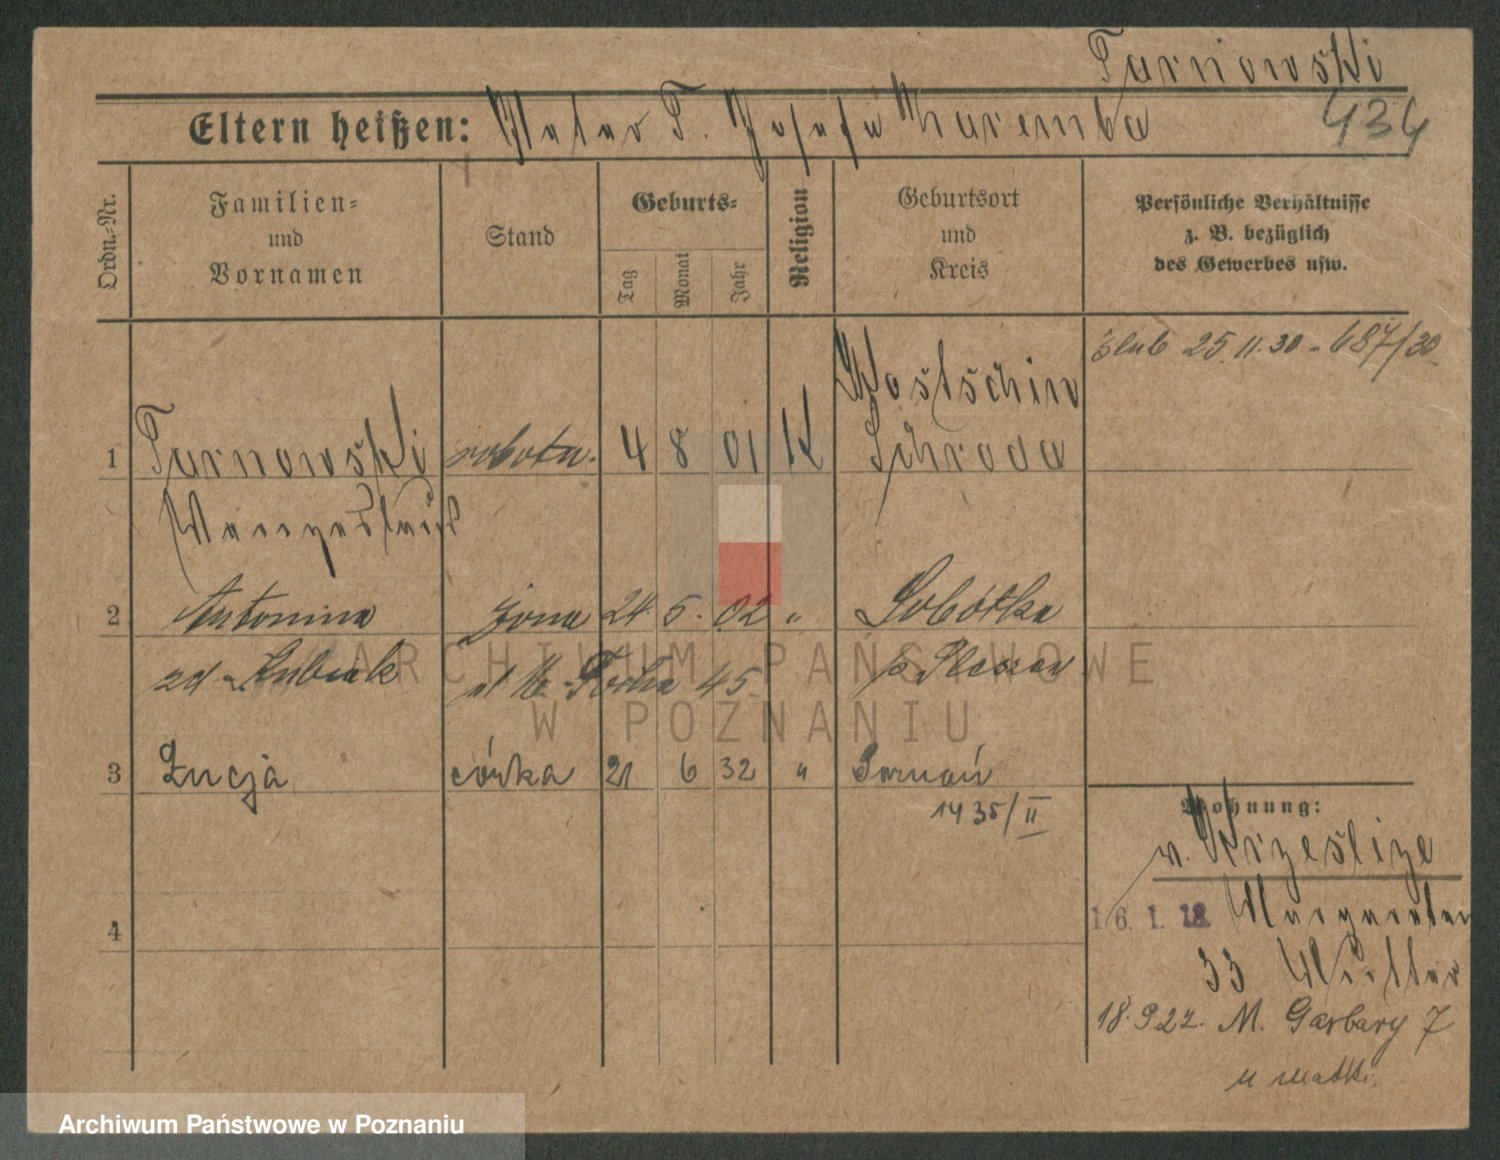 Tarnowski
434
Eltern heißen: Peter T. Josefa Zaremba
Ordn.-Nr.
Familien-
und
Vornamen
Stand
Geburts-
Tag
Monat
Jahr
Religion
Geburtsort
und
Kreis
Persönliche Verhältnisse
z. B. bezüglich
des Gewerbes usw.
ślub 25.11.30 - 687/30
Kostschin
1 Tarnowski robotn. 4 8 01 K Schroda
2 Antonina żona 24. 5. 02 „ Sobótka
zd Kubiak ul M. Focha 45 p Pleszew
3 Łucja córka 21 6 32 „ Poznań
1435/II
4
Wohnung:
v. Krzeslize
16. 1. 18 Margareten
33 Mutter
18.9.22. M. Garbary 7
u matki
ARCHIWUM PAŃSTWOWE
W POZNANIU
Archiwum Państwowe w Poznaniu